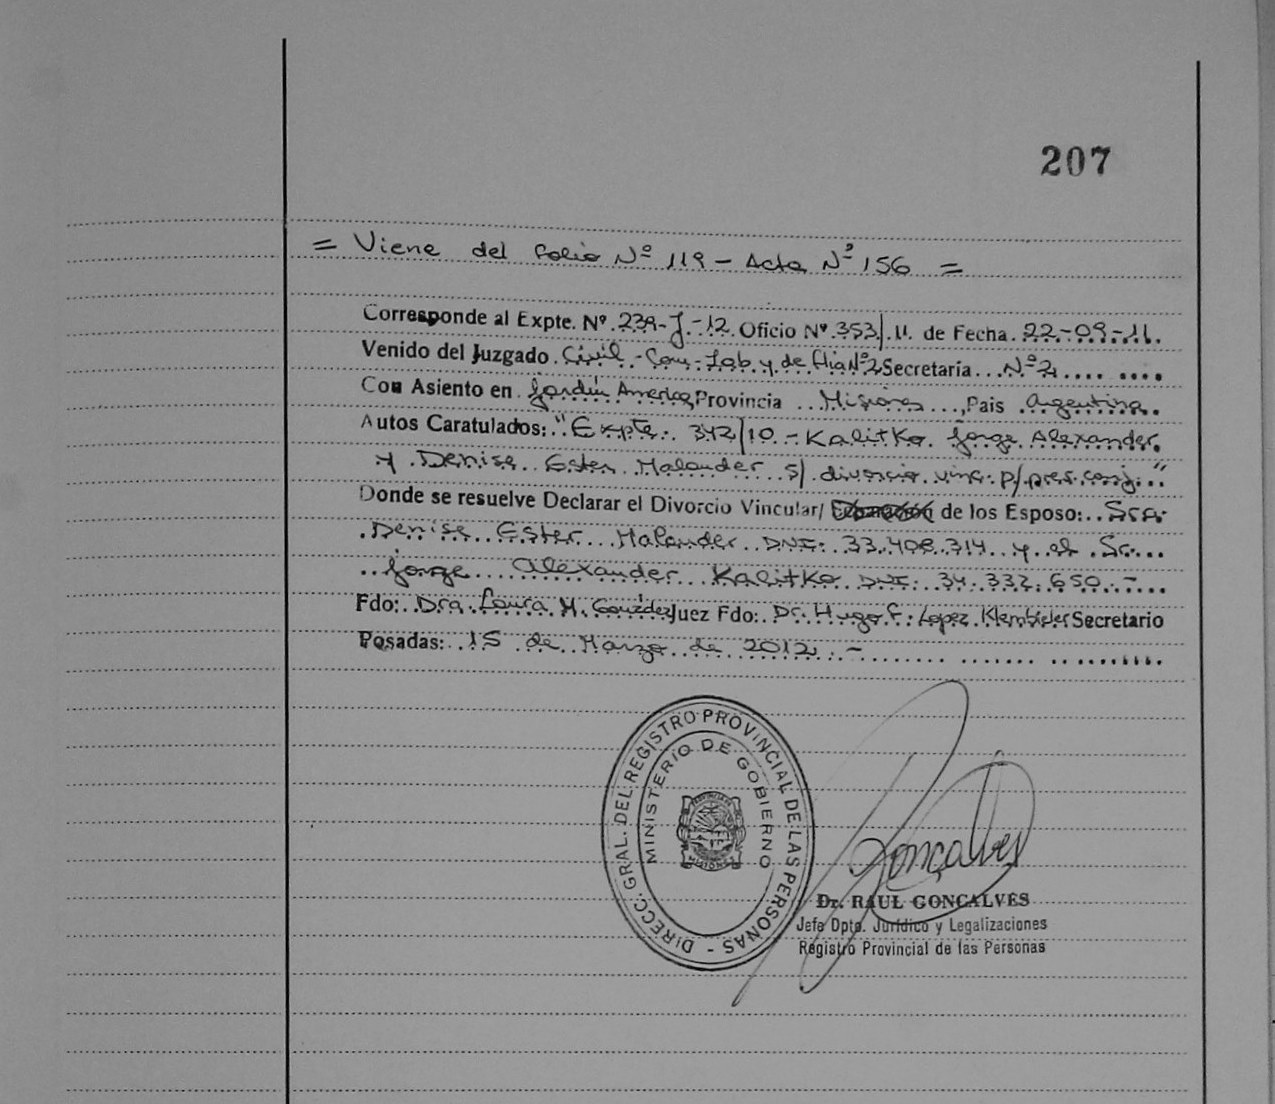 207
= Viene del folio Nº 119 - Acta Nº 156 =
Corresponde al Expte. Nº 239-J-12 Oficio Nº 353/11 de Fecha 22-09-11
Venido del Juzgado Civil - Com - Lab y de Flia Nº2 Secretaria Nº 2
Con Asiento en Jardín America, Provincia Misiones, Pais Argentina
Autos Caratulados: "Expte. 342/10 - Kalitko Jorge Alexander
y Denise Ester Malander s/ divorcio vinc. p/ pres. conj."
Donde se resuelve Declarar el Divorcio Vincular/ de los Esposo: Sra.
Denise Ester Malander DNI: 33.408.314 y el Sr.
Jorge Alexander Kalitko DNI: 34.332.650.-
Fdo: Dra. Laura M. Juez Fdo: Dr. Hugo F. Lopez Secretario
Posadas: 15 de Marzo de 2012.-
DIRECC. GRAL. DEL REGISTRO PROVINCIAL DE LAS PERSONAS -
MINISTERIO DE GOBIERNO
MISIONES
Gonçalves
Dr. RAUL GONCALVES
Jefe Dpto. Jurídico y Legalizaciones
Registro Provincial de las Personas